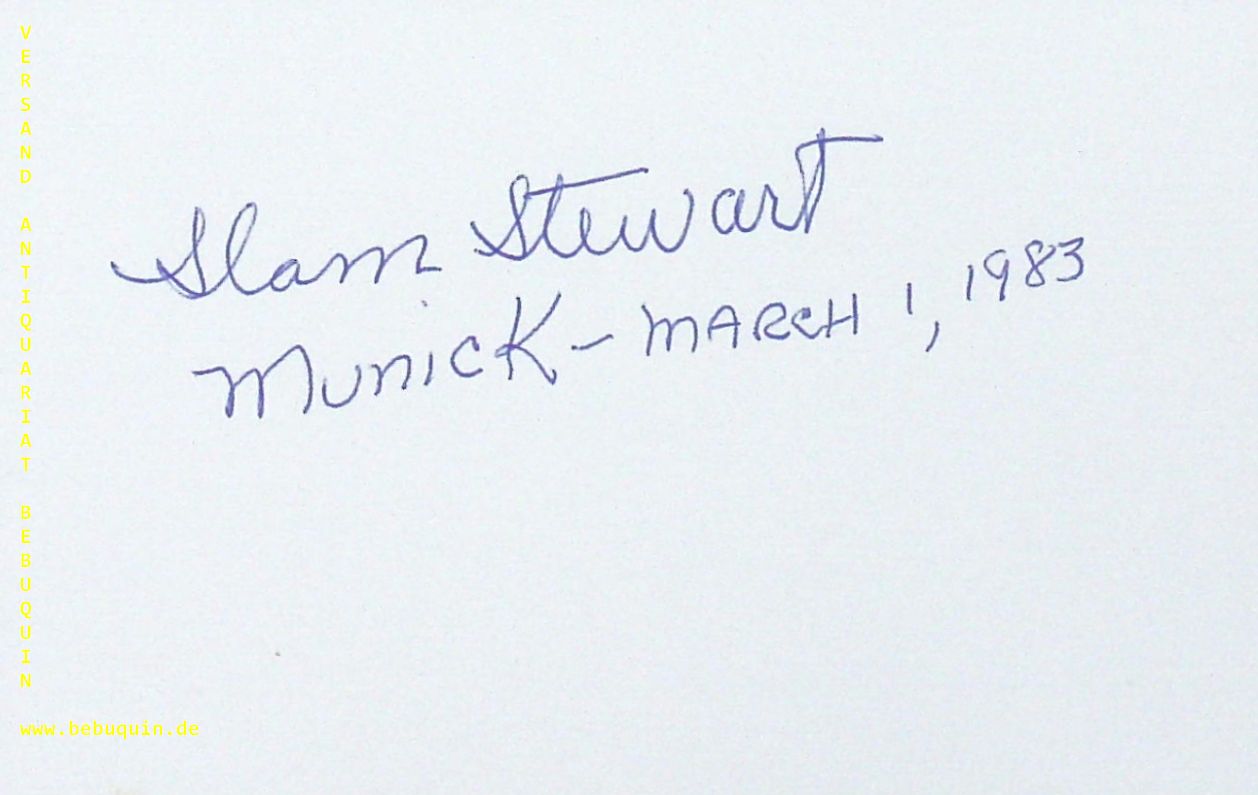 Slam Stewart
Munick - March 1, 1983
VERSAND ANTIQUARIAT BEBUQUIN
www.bebuquin.de